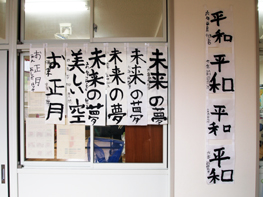 未来の夢
未来の夢
未来の夢
未来の夢
美しい空
お正月
お正月
平和
平和
平和
平和